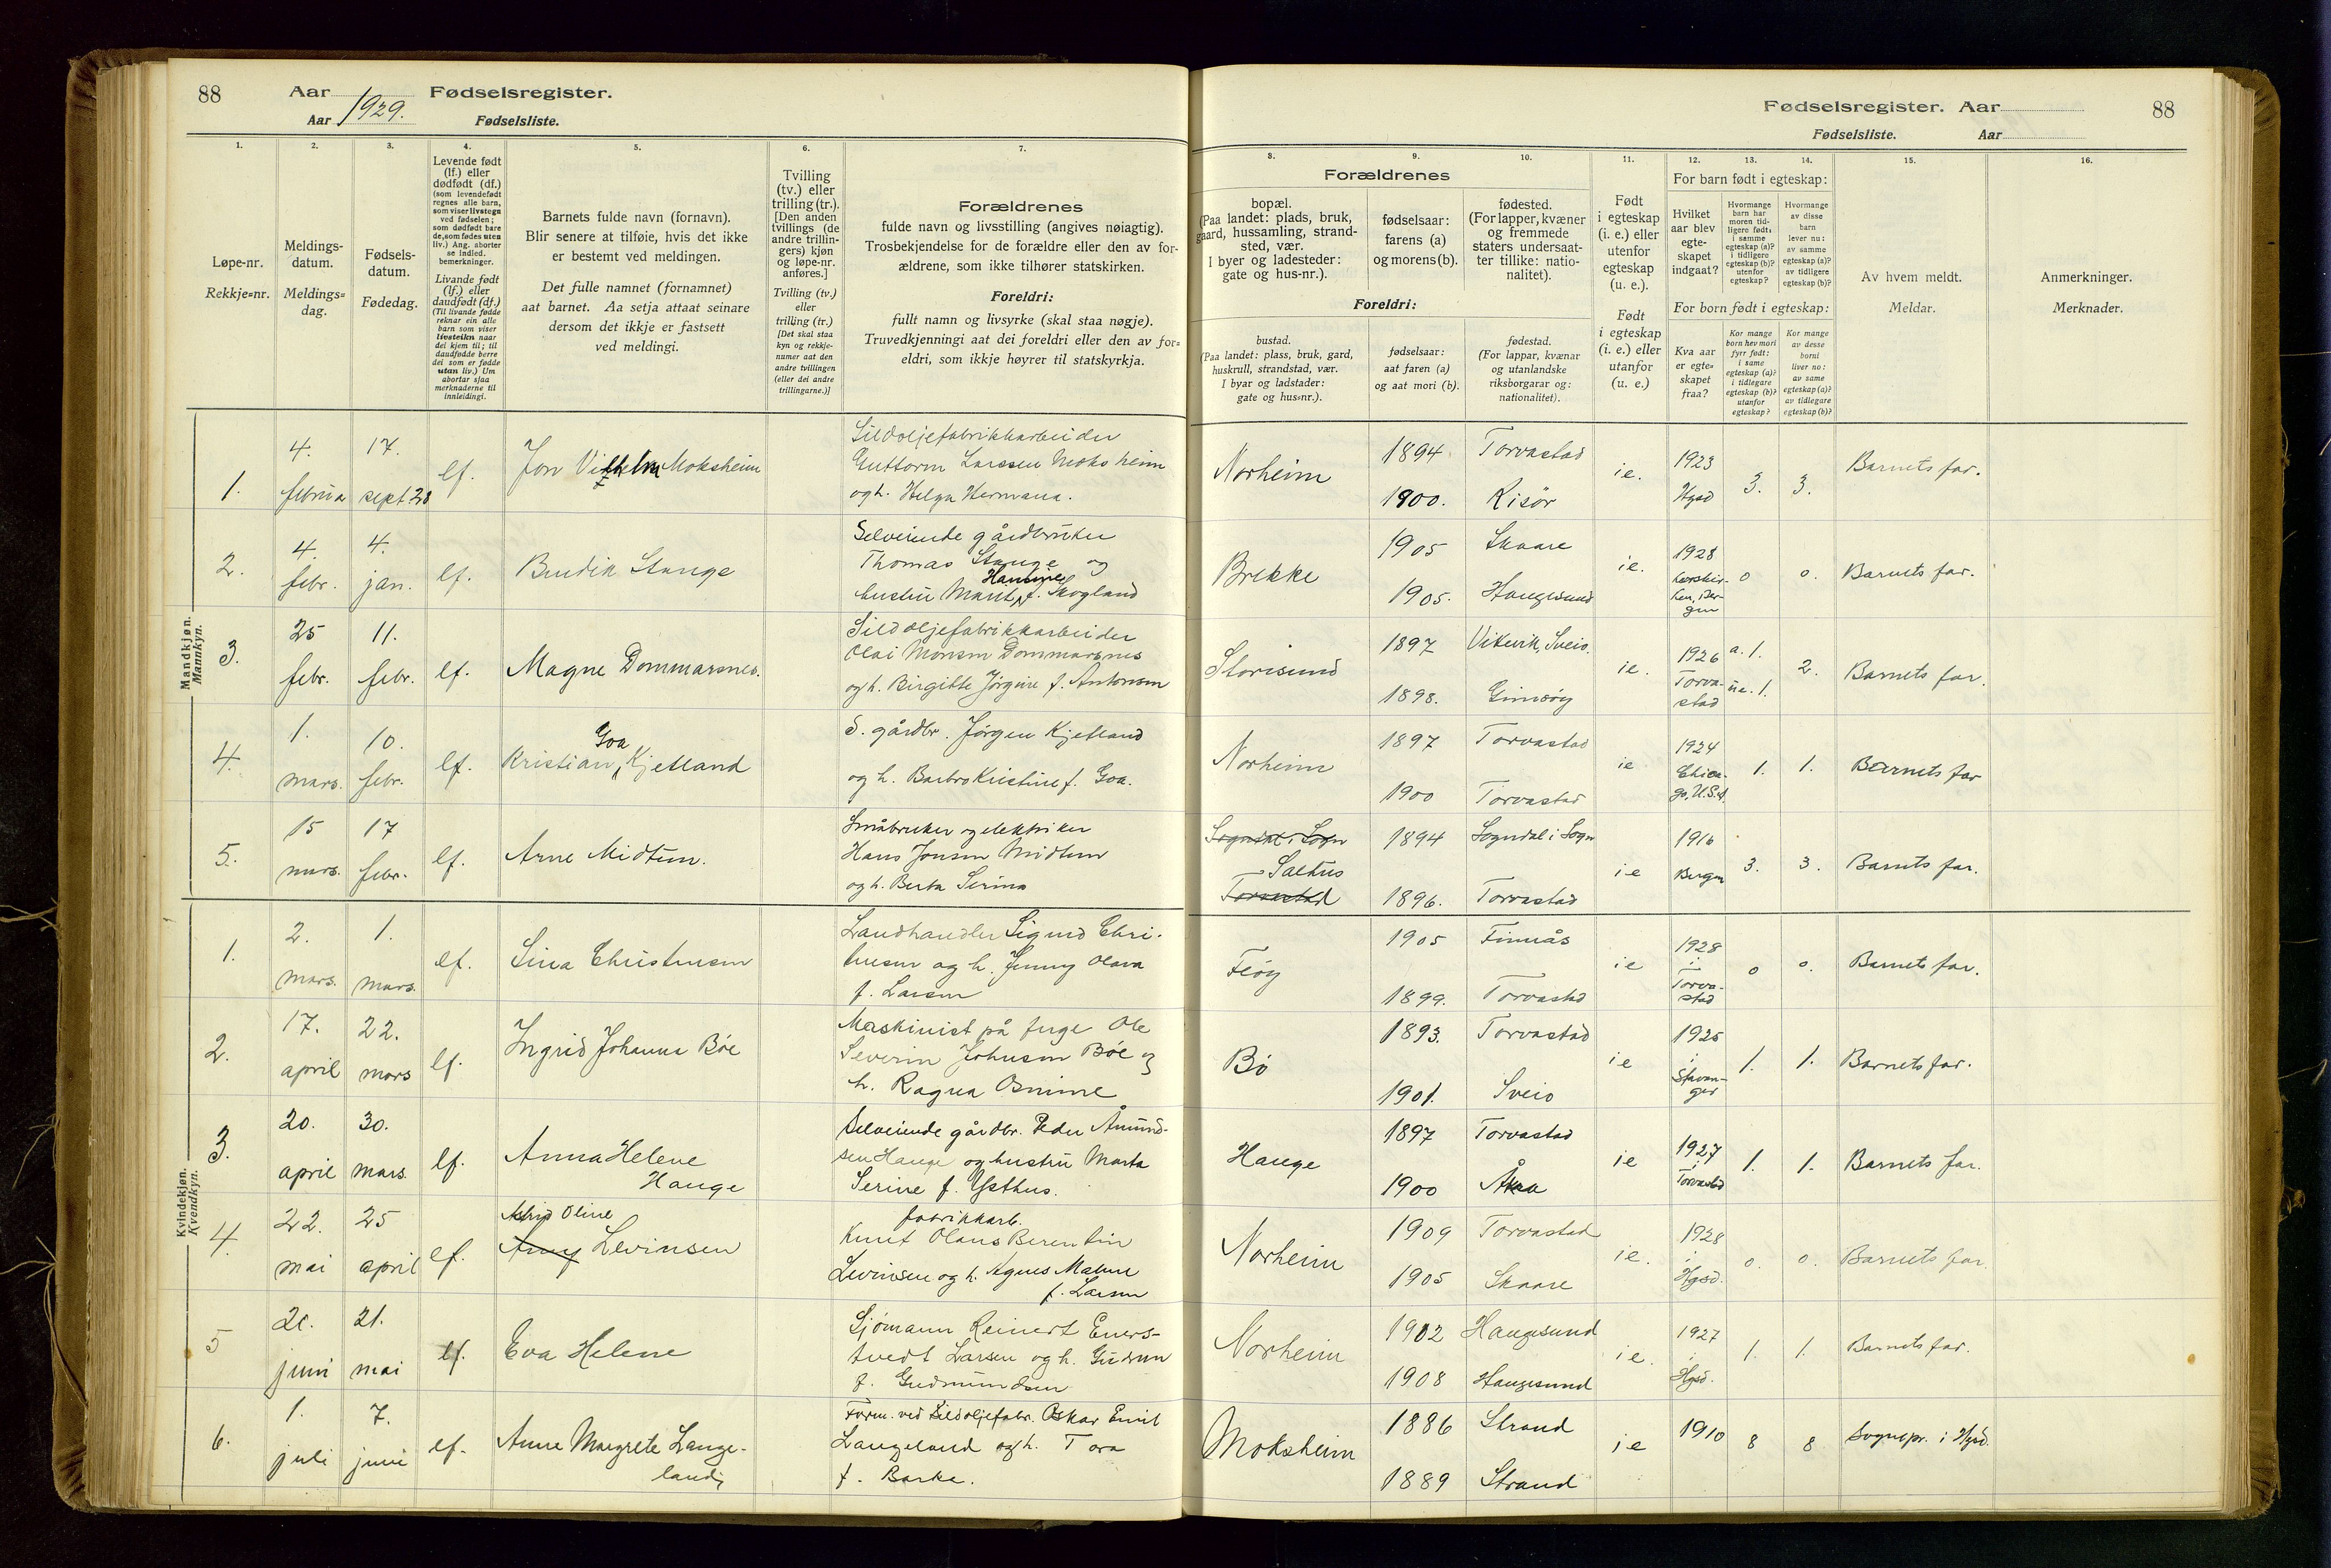 88
Aar 1929. Fødselsregister.
Aar Fødselsliste.
Fødselsregister. Aar
88
Fødselsliste. Aar
1.
Løpe-nr.
Rekkje-nr.
2.
Meldings-
datum.
Meldings-
dag.
3.
Fødsels-
datum.
Fødedag.
4.
Levende født
(lf.) eller
dødfødt (df.)
(som levendefødt
regnes alle barn,
som viser livstegn
ved fødselen;
som dødfødt bare
de, som fødes uten
liv.) Ang. aborter
se indled.
bemerkninger.
Livande født
(lf.) eller
daudfødt (df.)
(Til livande fødde
reknar ein alle
barn som viser
livsteikn naar
dei kjem til; til
daudfødde berre
dei som er fødde
utan liv.) Um
abortar sjaa
merknaderne til
innleidingi.
5.
Barnets fulde navn (fornavn).
Blir senere at tilføie, hvis det ikke
er bestemt ved meldingen.
Det fulle namnet (fornamnet)
aat barnet. Aa setja attaat seinare
dersom det ikkje er fastsett
ved meldingi.
6.
Tvilling
(tv.) eller
trilling (tr.).
[Den anden
tvillings (de
andre trillin-
gers) kjøn
og løpe-nr.
anføres.]
Tvilling (tv.)
eller
trilling (tr.)
[Det skal staa
kyn og rekkje-
numer aat den
andre tvillingen
(eller dei andre
trillingarne.)]
7.
Forældrenes
fulde navn og livsstilling (angives nøiagtig).
Trosbekjendelse for de forældre eller den av for-
ældrene, som ikke tilhører statskirken.
Foreldri:
fullt namn og livsyrke (skal staa nøgje).
Truvedkjenningi aat dei foreldri eller den av for-
eldri, som ikkje høyrer til statskyrkja.
Forældrenes
8.
bopæl.
(Paa landet: plads, bruk,
gaard, hussamling, strand-
sted, vær.
I byer og ladesteder:
gate og hus-nr.).
Foreldri:
bustad.
(Paa landet: plass, bruk, gard,
huskrull, strandstad, vær.
I byar og ladstader:
gate og hus-nr.).
9.
fødselsaar:
farens (a)
og morens (b).
fødselsaar:
aat faren (a)
og aat mori (b).
10.
fødested.
(For lapper, kvæner
og fremmede
staters undersaat-
ter tillike: natio-
nalitet).
fødestad.
(For lappar, kvænar
og utanlandske
riksborgarar og:
nationalitet).
11.
Født
i egteskap
(i. e.) eller
utenfor
egteskap
(u. e.).
Født
i egteskap
(i. e.) eller
utanfor
(u. e.)
For barn født i egteskap:
12.
Hvilket
aar blev
egte-
skapet
indgaat?
For born født i egteskap:
Kva aar
er egte-
skapet
fraa?
13.
Hvormange
barn har
moren tid-
ligere født:
i samme
egteskap (a)?
i tidligere
egteskap (b)?
utenfor
egteskap?
Kor mange
born hev mori
fyrr født:
i same
egteskap (a)?
i tidlegare
egteskap (b)?
utanfor
egteskap?
14.
Hvormange
av disse
barn
lever nu:
av samme
egteskap (a)?
av tidligere
egteskap (b)?
Kor mange
av desse
borni
liver no:
av same
egteskap (a)?
av tidlegare
egteskap (b)?
15.
Av hvem meldt.
Meldar.
16.
Anmerkninger.
Merknader.
Mandkjøn.
Mannkyn.
1.
4. februa
17. sept 28
lf.
Jon Vilhelm Moksheim
Sildoljefabrikkarbeider
Guttorm Larssen Moksheim
og h. Helga Hermana.
Norheim
1894 Torvastad
1900. Risör
ie.
1923
Hgsd
3.
3.
Barnets far.
2.
4. febr.
4. jan.
lf.
Bendik Stange
Selveiende gårdbruker
Thomas Stange og
Hansine
hustru Marit f. Skogland
Brekke
1905 Skaare
1905. Haugesund
ie.
1928
o
o.
Barnets far.
3.
25 febr.
11. febr.
lf.
Magne Dommarsnes.
Sildoljefabrikkarbeider
Olai Monsen Dommarsnes
og h. Birgitte Jörgine f. Antonsen
Storesund
1897 Vikevik, Sveio.
1898. Gimsöy
ie.
1926
Torva-
stad
a. 1.
ue. 1.
2.
Barnets far.
4.
1. mars.
10. febr.
lf.
Goa
Kristian Kjetland
S. gårdbr. Jörgen Kjetland
og h. Barbro Kristine f. Goa.
Norheim
1897 Torvastad
1900 Torvastad
ie
1924
Chica-
go, U.S.A.
1.
1.
Barnets far
5.
15 mars.
17 febr.
lf.
Arne Midtun.
Småbruker og elektriker
Hans Jonsen Midtun
og h. Berta Serina
Sogndal i Sogn
Saltus
Torvastad
1894 Sogndal i Sogn
1896. Torvastad
ie
1916
Bergen
3.
3.
Barnets far.
Kvindekjøn.
Kvendkyn.
1.
2. mars.
1. mars.
lf.
Sina Christensen
Landhandler Sigurd Chri-
stensen og h. Jenny Olava
f. Larsen
Feöy
1905 Finnås
1899. Torvastad
ie
1928
i
Torva-
stad
o
o.
Barnets far.
2.
17. april
22. mars
lf.
Ingrid Johanna Böe
Maskinist på ferge Ole
Severin Johnsen Böe og
h. Ragna Osmine
Bö
1893. Torvastad
1901. Sveio
ie
1925
i
Stavan-
ger
1.
1.
Barnets far.
3.
20. april
30. mars.
lf.
Anna Helene
Hauge
Selveiende gårdbr. Peder Åmund-
sen Hauge og hustru Marta
Serine f. Ysthus.
Hauge
1897 Torvastad
1900 Åkra
ie
1927
i
Torvastad
1.
1.
Barnets far.
4.
22. mai
25 april
lf.
Astrid Oline
Anny Levinsen
fabrikkarb.
Knut Olaus Berentin
Levinsen og h. Agnes Malene
f. Larsen
Norheim
1909 Torvastad
1905 Skaare
ie.
1928
i
Hgsd.
o.
o.
Barnets far.
5
20. juni
21. mai
lf.
Eva Helene
Sjömann Reinert Eners-
tvedt Larsen og h. Gudrun
f. Gudmundsen
Norheim
1902 Haugesund
1908 Haugesund
ie.
1927
i
Hgsd.
1.
1.
Barnets far.
6.
1. juli
7. juni
lf.
Anne Margrete Lange-
land
Form. ved Sildoljefabr. Oskar Emil
Langeland og h. Tora
f. Barka.
Moksheim
1886 Strand
1889 Strand
ie
1910
8
8
Sognepr. i Hgsd.